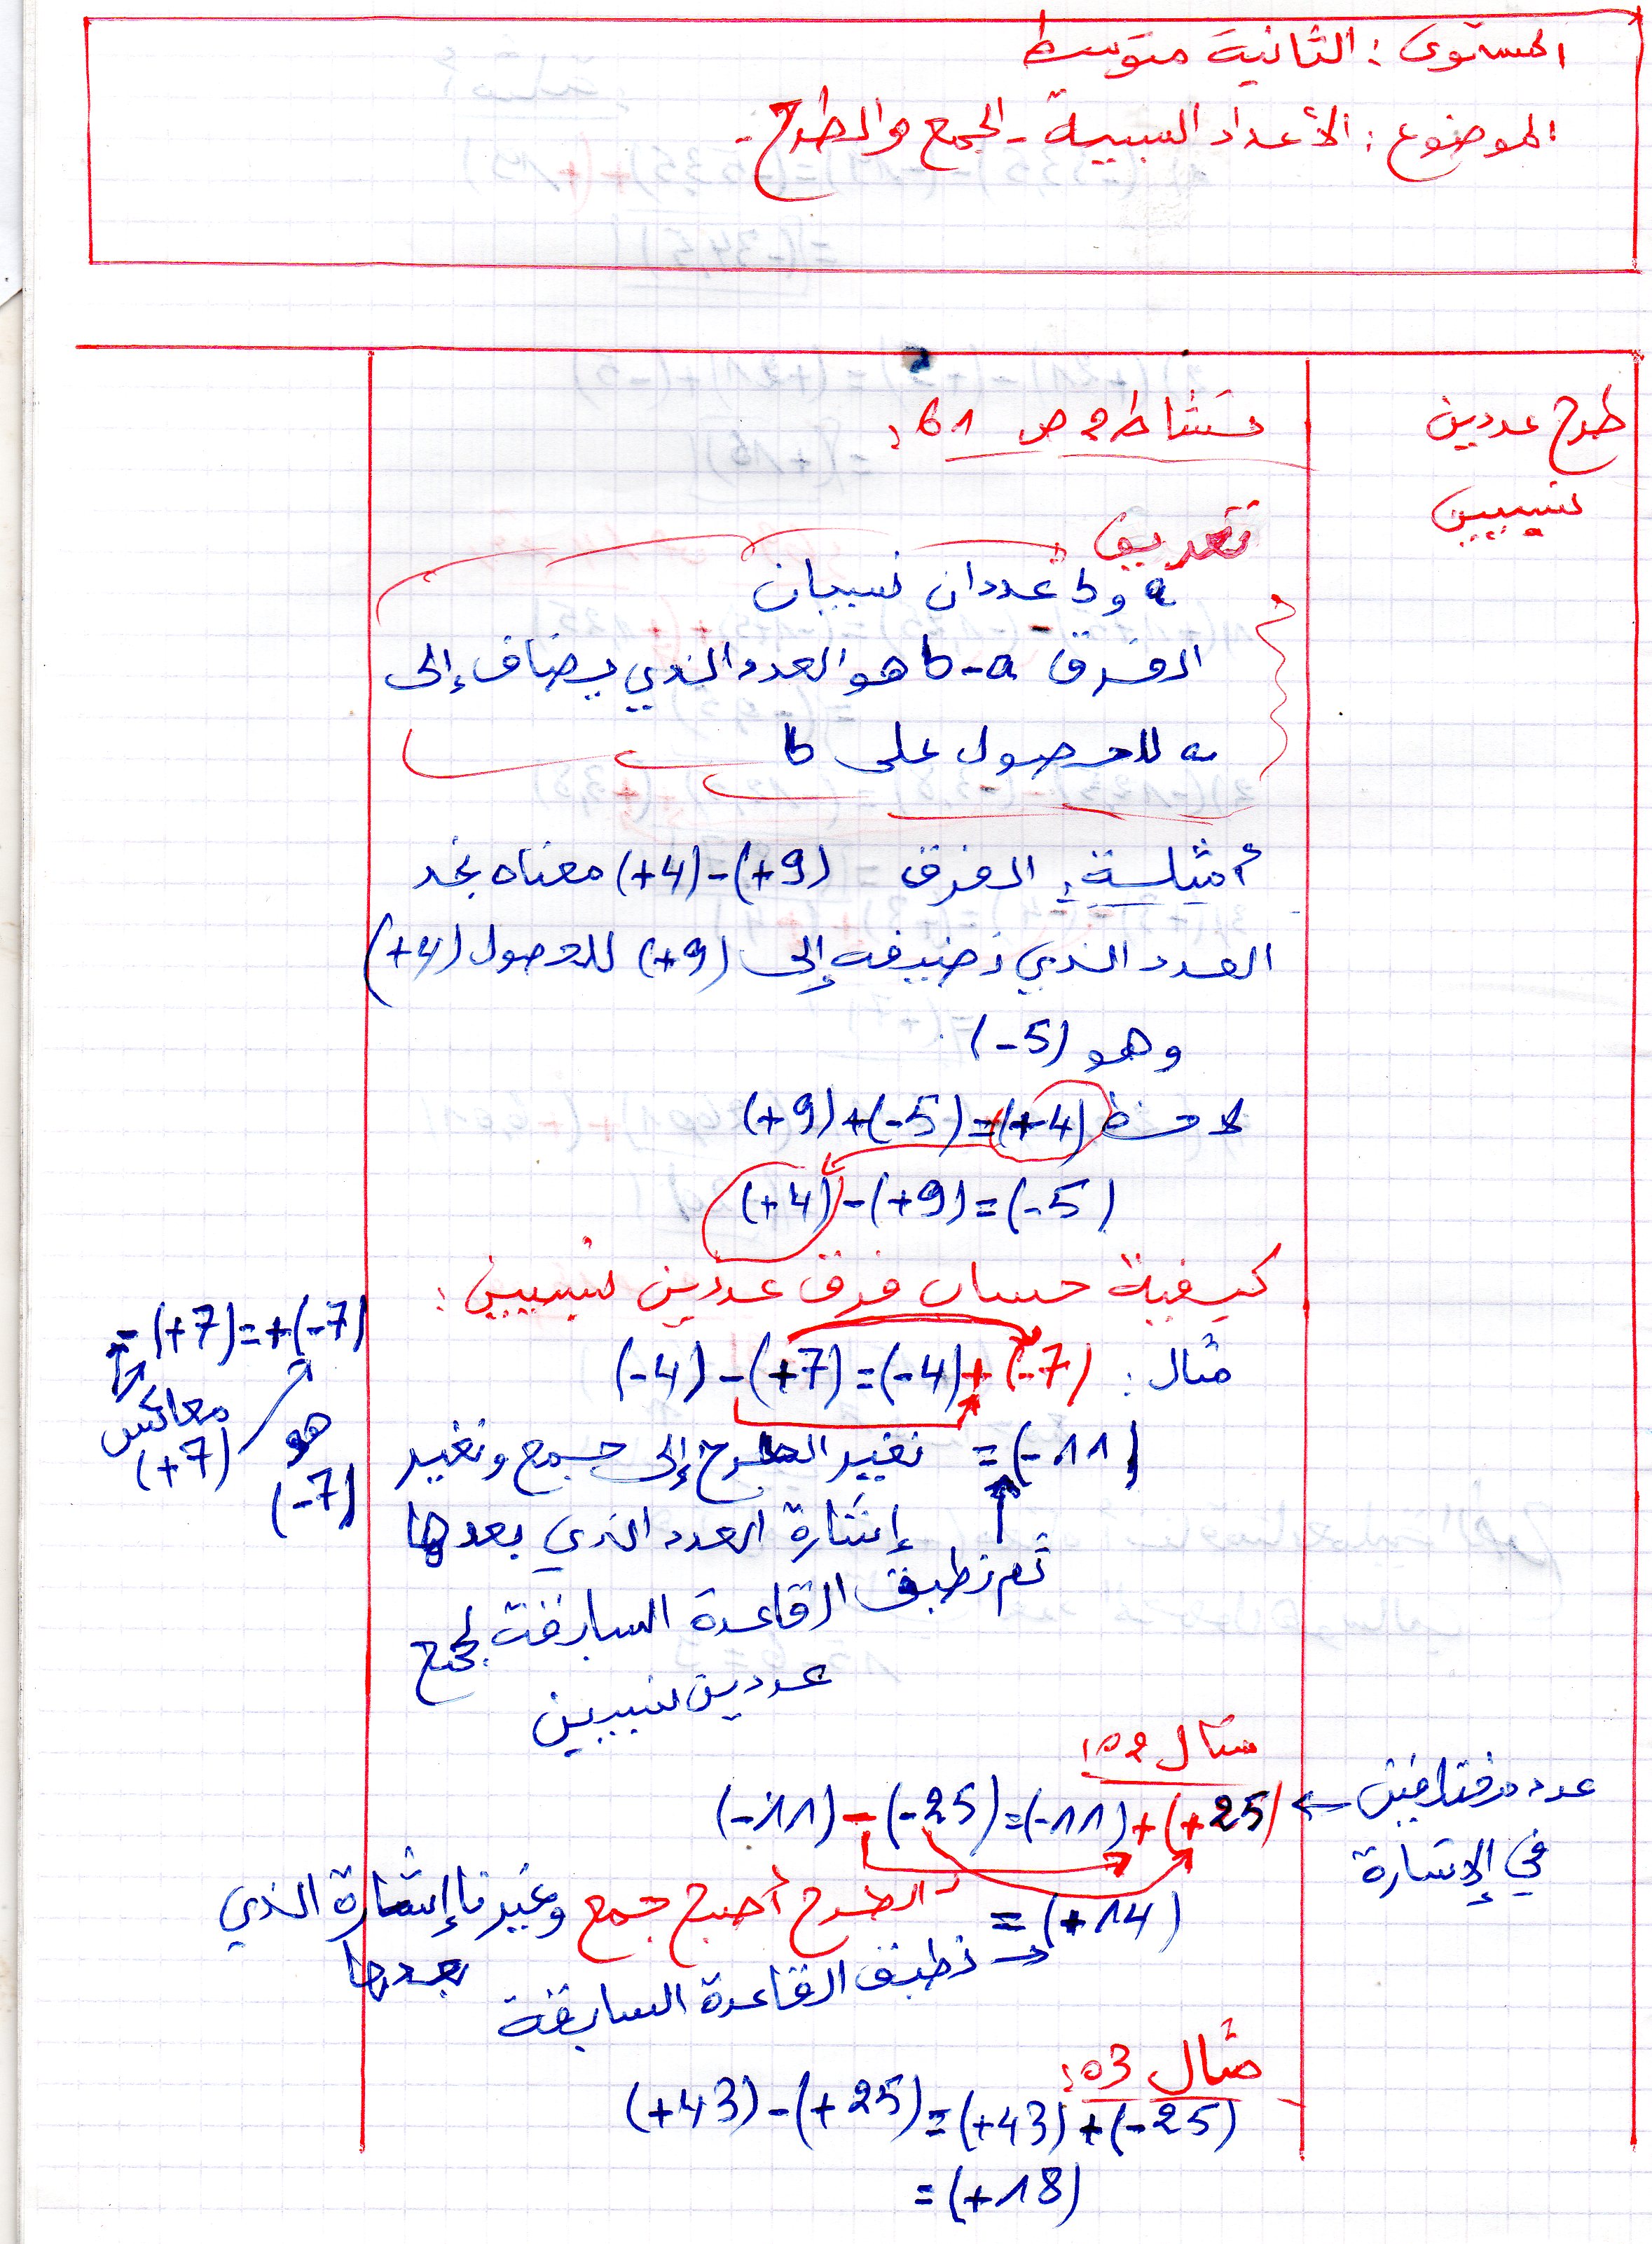 المستوى : الثانية متوسط
الموضوع : الأعداد النسبية - الجمع والطرح -
طرح عددين
نسبيين
نشاط 2 ص 61 :
تعريف :
a و b عددان نسبيان
الفرق b-a هو العدد الذي يضاف إلى
a للحصول على b
أمثلة : الفرق (+4)-(+9) معناه نجد
العدد الذي نضيفه إلى (+9) للحصول (+4)
وهو (-5)
لاحظ (+9)+(-5)=(+4)
(+4)-(+9)=(-5)
كيفية حساب فرق عددين نسبيين :
مثال : (-4)-(+7)=(-4)+(-7)
=(-11)
نغير الطرح إلى جمع ونغير
إشارة العدد الذي بعدها
ثم نطبق القاعدة السابقة لجمع
عددين نسبيين
-(+7)=+(-7)
معاكس
(+7)
هو
(-7)
مثال 02 :
(-11)-(-25)=(-11)+(+25)
عدد مختلفين
في الإشارة
=(+14)
الطرح أصبح جمع وغيرنا إشارة الذي
بعدها
نطبق القاعدة السابقة
مثال 03 :
(+43)-(+25)=(+43)+(-25)
=(+18)